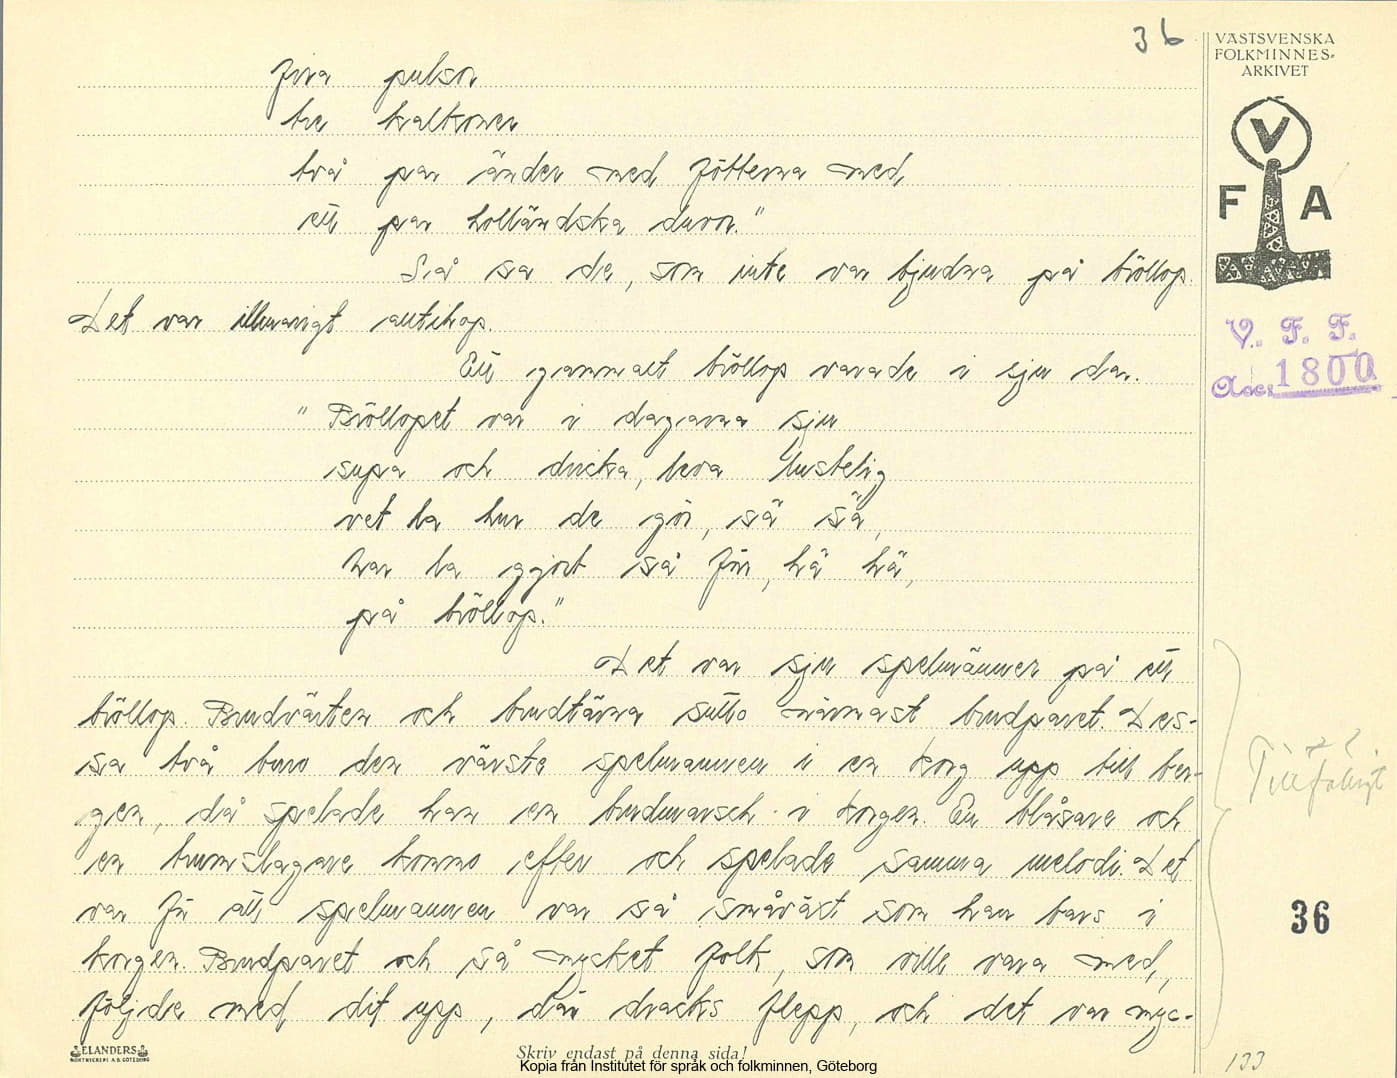 36
VÄSTSVENSKA
FOLKMINNES-
ARKIVET
V
F A
V. F. F.
Acc. 1800
fyra pulsor
tre kalkoner
två par änder med fötterna med,
ett par holländska duvor."
Så sa de, som inte var bjudna på bröllop.
Det var illmarigt alltihop.
Ett gammalt bröllop varade i sju dar.
" Bröllopet var i dagarna sju
supa och dricka, leva lustelig
vet la hur de gör, sä sä,
har la gjort så för, hä hä,
på bröllop."
Det var sju spelmänner på ett
bröllop. Brudvärten och brudtärna sutto närmast brudparet. Des-
sa två buro den värste spelmannen i en korg upp till ber-
gen, då spelade han en brudmarsch i korgen. En blåsare och
en trumslagare kommo efter och spelade samma melodi. Det
var för att spelmannen var så småväxt som han bars i
korgen. Brudparet och så mycket folk, som ville vara med,
följde med dit upp, där dracks flepp, och det var myc-
Tillfälligt?
36
133
ELANDERS
BOKTRYCKERI A.B. GÖTEBORG
Skriv endast på denna sida!
Kopia från Institutet för språk och folkminnen, Göteborg